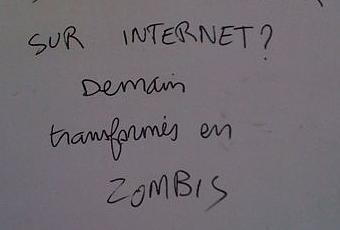 SUR INTERNET?
Demain
transformés en
ZOMBIS